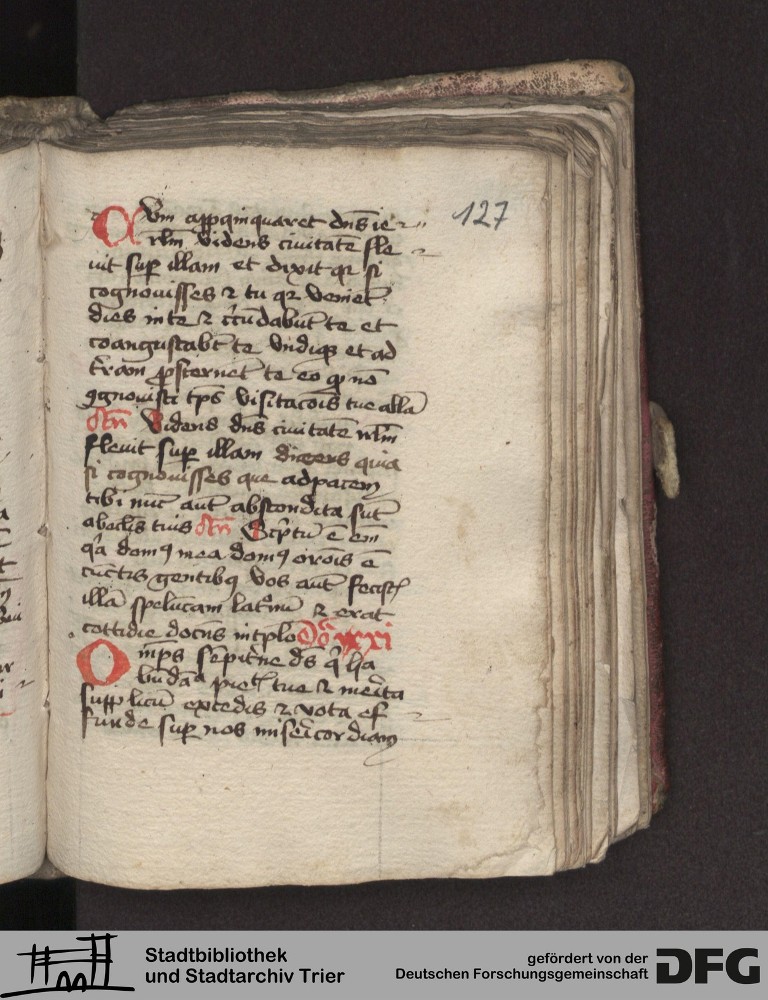 127
Cum appǫinquaret dns ie
rlm videns ciuitatē fle
uit sup illam et dixit qr si
cognouisses ⁊ tu qr venient
dies in te ⁊ ccūdabūt te et
coangustabt te vndiqꝫ et ad
terram ꝓsternēt te eo qꝫ nō
ꝯgnouisti tps visitacōis tue allā
Itn̄ Videns dns ciuitatē irlm
fleuit sup illam dicens quia
si cognouisses que ad pacem
tibi nūc aūt abscondita sūt
ab oclis tuis Scptū ē em̄
qꝛ domꝰ mea domꝰ orōis ē
cūctis gentibꝰ vos aūt fecistꝭ
illā speluncam latronū ⁊ erat
cottidie docens in tplo Dō xxi
Omps sempitne ds q̇ ha
būdācia pietꝭ tue ⁊ merita
supplicū excedis ⁊ vota ef
funde sup nos misericordiam
Stadtbibliothek
und Stadtarchiv Trier
gefördert von der
Deutschen Forschungsgemeinschaft
DFG